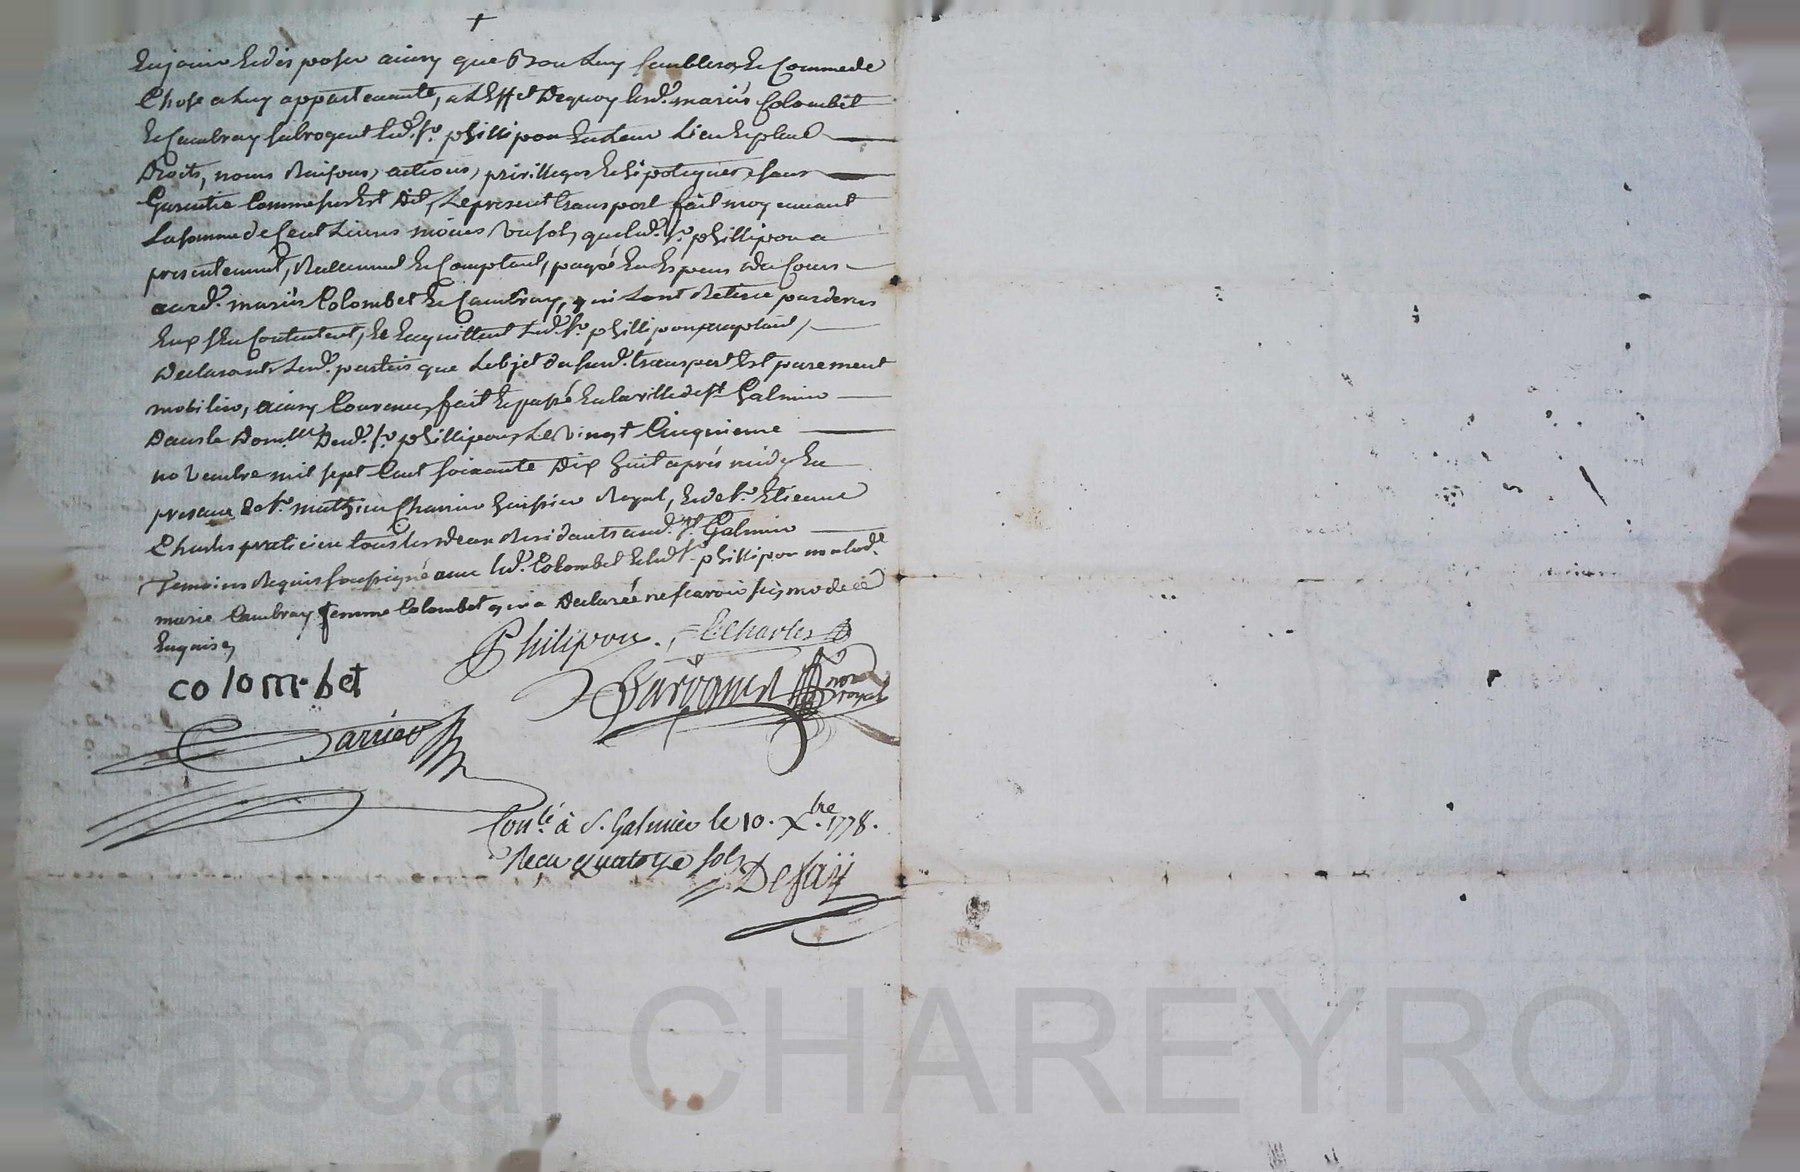 En jouir & disposer ainsy que Bon Luy semblera, & Comme de
Chose a luy appartenante, a L'Effet De quoy lesd.s mariés Colombet
& Cambray subrogent led.t Sr. phillipon En leur Lieu & place
Droits, noms Raisons, actions, privilleges & hipoteques, sans
Garentie Comme sus Est Dit, Le present transport fait moyennant
La somme de Cent Livres moins vn sol, que led.t Sr. phillipon a
presentement, Reellement & Comptant, payé En Especes du Cours
auxd.s mariés Colombet & Cambray, qui L'ont Retirée par devers
Eux S'En Contentent, & En quittent Led.t Sr. phillipon
Declarant Lesd.s parties que L'objet du susd.t transport Est purement
mobilier, ainsy Convenu, fait & passé En la ville de St Galmier
Dans le Domlle Dud.t Sr. phillipon, Le vingt Cinquieme
novembre mil sept Cent soixante Dix huit après midy En
presence de Sr. mathieu huissier Royal, & de Sr. Etienne
Charles praticien tous les deux Residants aud.t St. Galmier
Temoins Requis soussignés avec led.t Colombet & led.t Sr. phillipon
marie Cambray femme Colombet qui a Declarée ne scavoir signer de ce
Enquise,
Philipon. E Charles
colom·bet
nore royal
Conlé à S. Galmier le 10. Xbre. 1778.
Reçu quatorze sols
Defaÿ
Pascal CHAREYRON